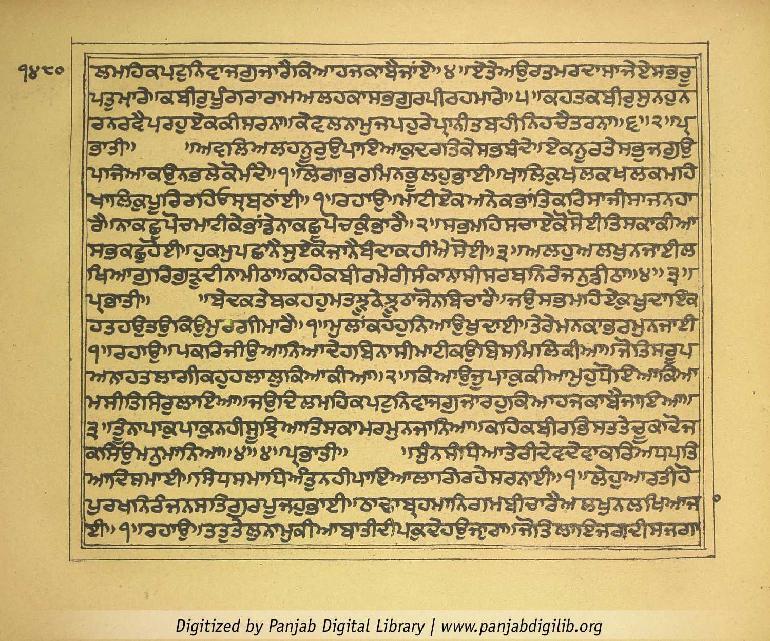 ੧੪੮੦
ਲਮਹਿਕਪਟੁਨਿਵਾਜਗੁਜਾਰੈਕਿਆਹਜਕਾਬੈਜਾਂਏ॥੪॥ਏਤੇਅਉਰਤਮਰਦਾਸਾਜੇਏਸਭਰੂ
ਪਤੁਮਾਰੇ॥ਕਬੀਰੁਪੂੰਗਰਾਰਾਮਅਲਹਕਾਸਭਗੁਰਪੀਰਹਮਾਰੇ॥੫॥ਕਹਤਕਬੀਰੁਸੁਨਹੁਨ
ਰਨਰਵੈਪਰਹੁਏਕਕੀਸਰਨਾ॥ਕੇਵਲਨਾਮੁਜਪਹੁਰੇਪ੍ਰਾਨੀਤਬਹੀਨਿਹਚੈਤਰਨਾ॥੬॥੨॥ਪ੍ਰ
ਭਾਤੀ॥ ਅਵਲਿਅਲਹਨੂਰੁਉਪਾਇਆਕੁਦਰਤਿਕੇਸਭਬੰਦੇ॥ਏਕਨੂਰਤੇਸਭੁਜਗੁਉ
ਪਜਿਆਕਉਨਭਲੇਕੋਮੰਦੇ॥੧॥ਲੋਗਾਭਰਮਿਨਭੂਲਹੁਭਾਈ॥ਖਾਲਿਕੁਖਲਕਖਲਕਮਹਿ
ਖਾਲਿਕੁਪੂਰਿਰਹਿਓਸ੍ਰਬਠਾਂਈ॥੧॥ਰਹਾਉ॥ਮਾਟੀਏਕਅਨੇਕਭਾਂਤਿਕਰਿਸਾਜੀਸਾਜਨਹਾ
ਰੈ॥ਨਾਕਛੁਪੋਚਮਾਟੀਕੇਭਾਂਡੇਨਾਕਛੁਪੋਚਕੁੰਭਾਰੈ॥੨॥ਸਭਮਹਿਸਚਾਏਕੋਸੋਈਤਿਸਕਾਕੀਆ
ਸਭਕਛੁਹੋਈ॥ਹੁਕਮੁਪਛਾਨੈਸੁਏਕੋਜਾਨੈਬੰਦਾਕਹੀਐਸੋਈ॥੩॥ਅਲਹੁਅਲਖੁਨਜਾਈਲ
ਖਿਆਗੁਰਿਗੁੜੁਦੀਨਾਮੀਠਾ॥ਕਹਿਕਬੀਰਮੇਰੀਸੰਕਾਨਾਸੀਸਰਬਨਿਰੰਜਨੁਡੀਠਾ॥੪॥੩॥
ਪ੍ਰਭਾਤੀ॥ ਬੇਦਕਤੇਬਕਹਹੁਮਤਝੂਠੇਝੂਠਾਜੋਨਬਿਚਾਰੈ॥ਜਉਸਭਮਹਿਏਕੁਖੁਦਾਇਕ
ਹਤਹਉਤਉਕਿਉਮੁਰਗੀਮਾਰੈ॥੧॥ਮੁਲਾਂਕਹਹੁਨਿਆਉਖੁਦਾਈ॥ਤੇਰੇਮਨਕਾਭਰਮੁਨਜਾਈ
੧॥ਰਹਾਉ॥ਪਕਰਿਜੀਉਆਨਿਆਦੇਹਬਿਨਾਸੀਮਾਟੀਕਉਬਿਸਮਿਲਿਕੀਆ॥ਜੋਤਿਸਰੂਪ
ਅਨਾਹਤਲਾਗੀਕਹੁਹਲਾਲੁਕਿਆਕੀਆ॥੨॥ਕਿਆਉਜੂਪਾਕੁਕੀਆਮੁਹੁਧੋਇਆਕਿਆ
ਮਸੀਤਿਸਿਰੁਲਾਇਆ॥ਜਉਦਿਲਮਹਿਕਪਟੁਨਿਵਾਜਗੁਜਾਰਹੁਕਿਆਹਜਕਾਬੈਜਾਇਆ॥
੩॥ਤੂੰਨਾਪਾਕੁਪਾਕੁਨਹੀਸੂਝਿਆਤਿਸਕਾਮਰਮੁਨਜਾਨਿਆ॥ਕਹਿਕਬੀਰਭਿਸਤਤੇਚੂਕਾਦੋਜ
ਕਸਿਉਮਨੁਮਾਨਿਆ॥੪॥੪॥ਪ੍ਰਭਾਤੀ॥ ਸੁੰਨਸੰਧਿਆਤੇਰੀਦੇਵਦੇਵਾਕਰਿਅਧਪਤਿ
ਆਦਿਸਮਾਈ॥ਸਿਧਸਮਾਧਿਅੰਤੁਨਹੀਪਾਇਆਲਾਗਿਰਹੇਸਰਨਾਈ॥੧॥ਲੇਹੁਆਰਤੀਹੋ
ਪੁਰਖਨਿਰੰਜਨਸਤਿਗੁਰਪੂਜਹੁਭਾਈ॥ਠਾਢਾਬ੍ਰਹਮਾਨਿਗਮਬੀਚਾਰੈਅਲਖੁਨਲਖਿਆਜਾ
ਈ॥੧॥ਰਹਾਉ॥ਤਤੁਤੇਲੁਨਾਮੁਕੀਆਬਾਤੀਦੀਪਕੁਦੇਹਉਜ੍ਯਾਰਾ॥ਜੋਤਿਲਾਇਜਗਦੀਸਜਗਾ
Digitized by Panjab Digital Library | www.panjabdigilib.org